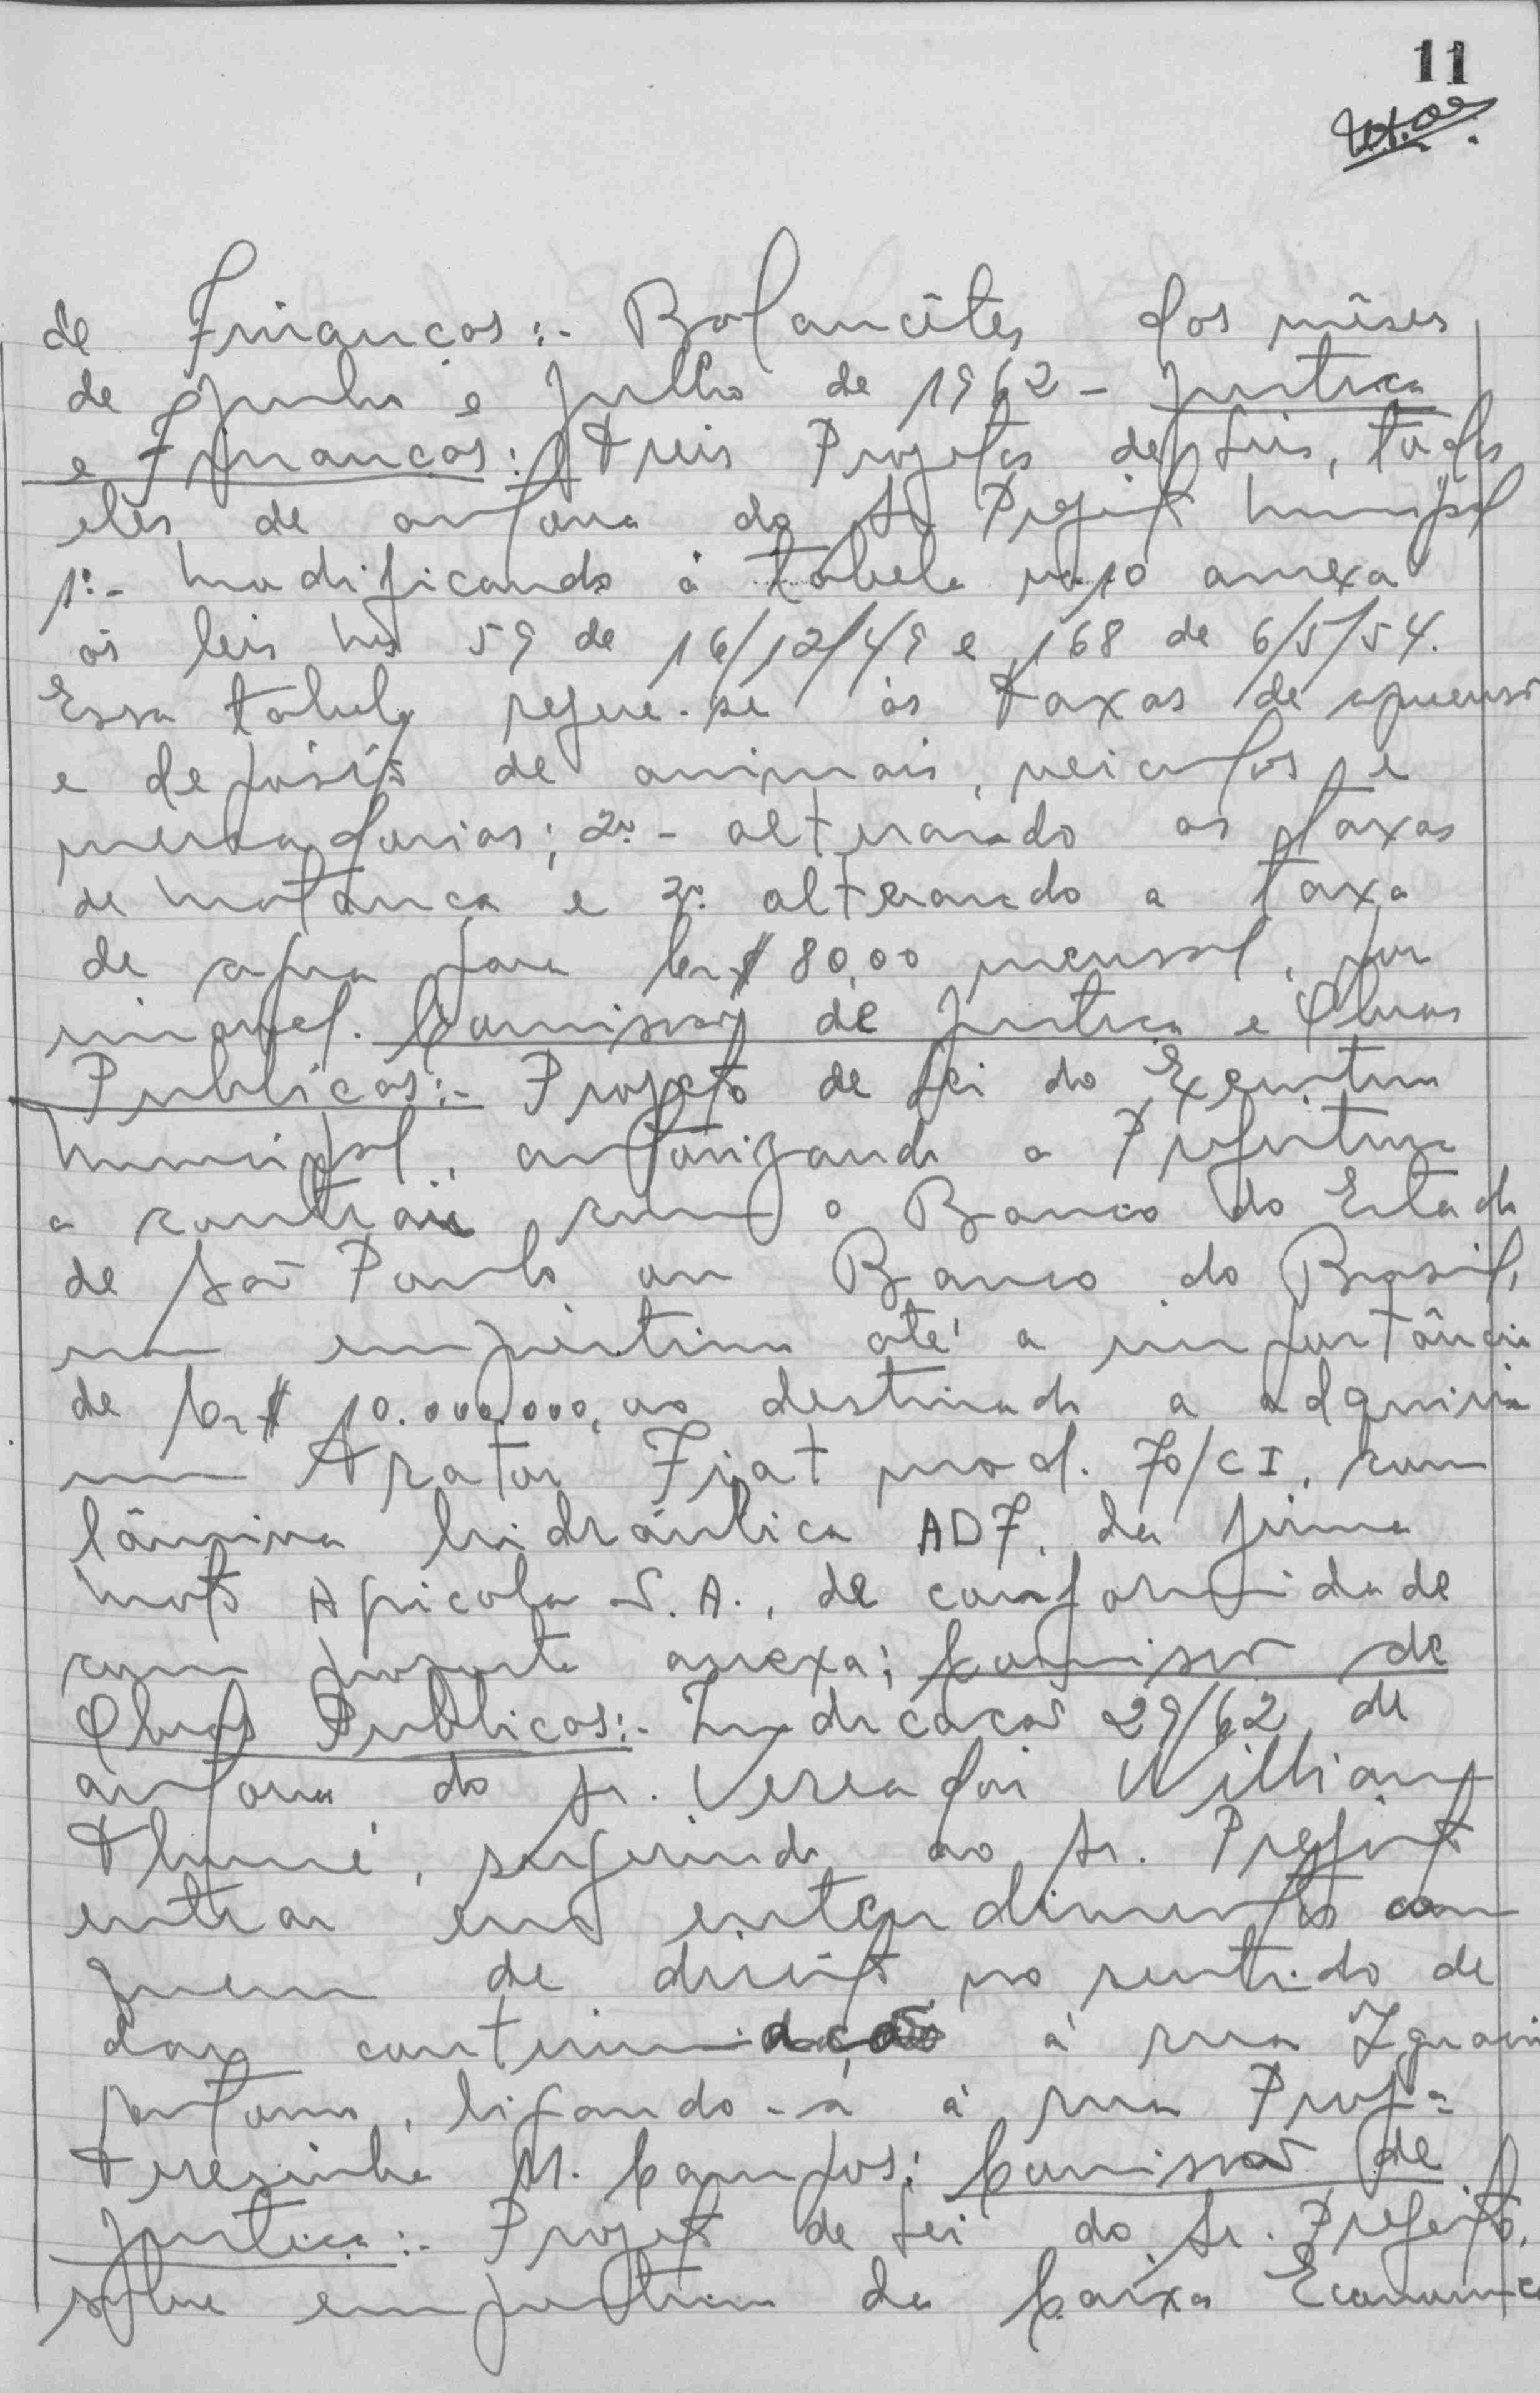 11
de Finanças:- Balancêtes dos mêses
de Junho e Julho de 1962 - Justiça
e Finanças: Treis Projetos de Leis, todos
eles de autoria do Sr. Prefeito Municipal
1º- Modificando a tabela nº 10 anexa
ás leis Nºs 59 de 16/12/49 e 168 de 6/5/54.
Essa tabela refere-se às taxas de apreensão
e depósito de animais, veiculos e
mercadorias; 2º- alterando as taxas
de matança e 3º alterando a taxa
de agua para Cr$ 80,00 mensal, por
imovel. Comissão de Justiça e Obras
Publicas:- Projeto de Lei do Executivo
Municipal, autorizando a Prefeitura
a contrair com o Banco do Estado
de São Paulo ou Banco do Brasil,
um emprestimo até a importância
de Cr$ 10.000.000,00 destinado a adquirir
um Trator Fiat mod. 70/CI, com
lâmina hidráulica AD7, da firma
Moto Agricola S.A., de conformidade
com proposta anexa; Comissão de
Obras Publicas:- Indicação 29/62, de
autoria do Sr. Vereador William
Thumé, sugerindo ao Sr. Prefeito
entrar em entendimentos com
quem de direito no sentido de
dar continuidação á rua Ignacio
, ligando-a á rua Profª
Terezinha M. Campos; Comissão de
Justiça:- Projeto de Lei do Sr. Prefeito,
sobre emprestimo da Caixa Economica